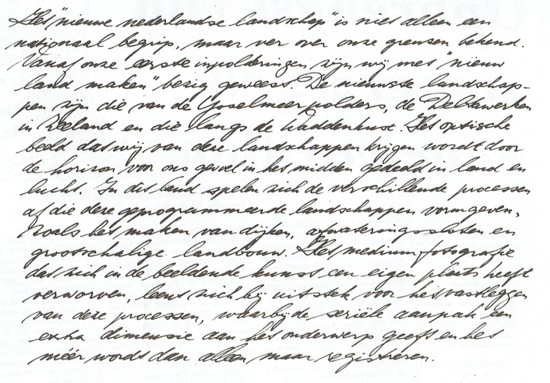 Het "nieuwe nederlandse landschap" is niet alleen een
nationaal begrip, maar ver over onze grenzen bekend.
Vanaf onze eerste inpolderingen zijn wij met "nieuw
land maken" bezig geweest. De nieuwste landschap-
pen zijn die van de IJsselmeerpolders, de Deltawerken
in Zeeland en die langs de Waddenkust. Het optische
beeld dat wij van deze landschappen krijgen wordt door
de horizon voor ons gevoel in het midden gedeeld in land en
lucht. In dit land spelen zich de verschillende processen
af die deze geprogrammeerde landschappen vormgeven,
zoals het maken van dijken, afwateringssloten en
grootschalige landbouw. Het medium fotografie
dat zich in de beeldende kunst een eigen plaats heeft
verworven, leent zich bij uitstek voor het vastleggen
van deze processen, waarbij de seriële aanpak een
extra dimensie aan het onderwerp geeft en het
méér wordt dan alleen maar registreren.